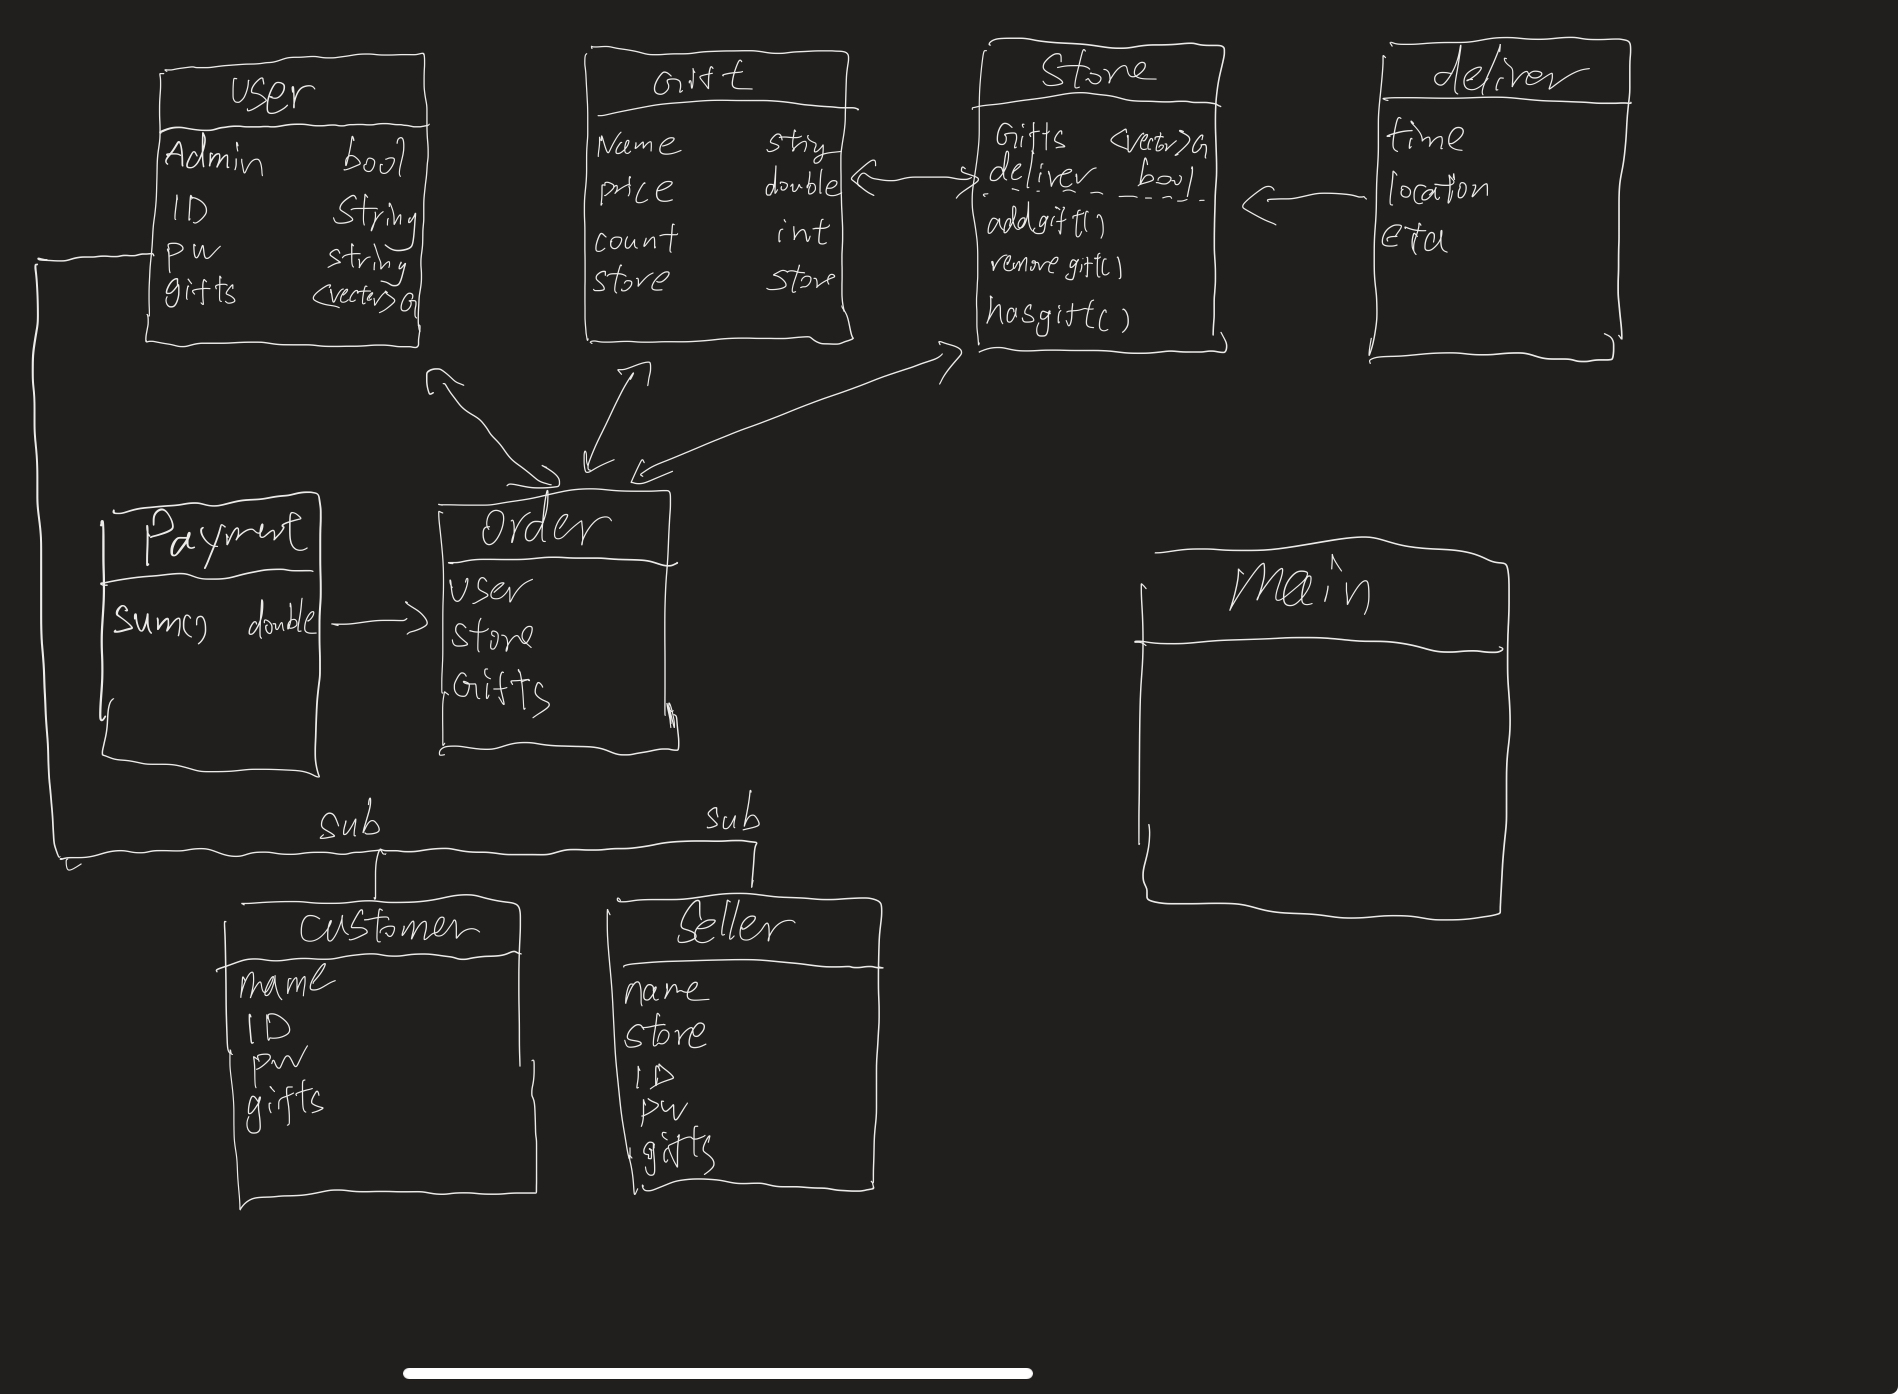 user
Admin bool
ID String
pw string
gifts <vector>G
Gift
Name string
price double
count int
store store
Store
Gifts <vector>G
deliver bool
addgift()
remove gift()
hasgift()
deliver
time
location
eta
Payment
sum() double
order
user
store
Gifts
main
sub
sub
customer
name
ID
pw
gifts
Seller
name
store
ID
pw
gifts